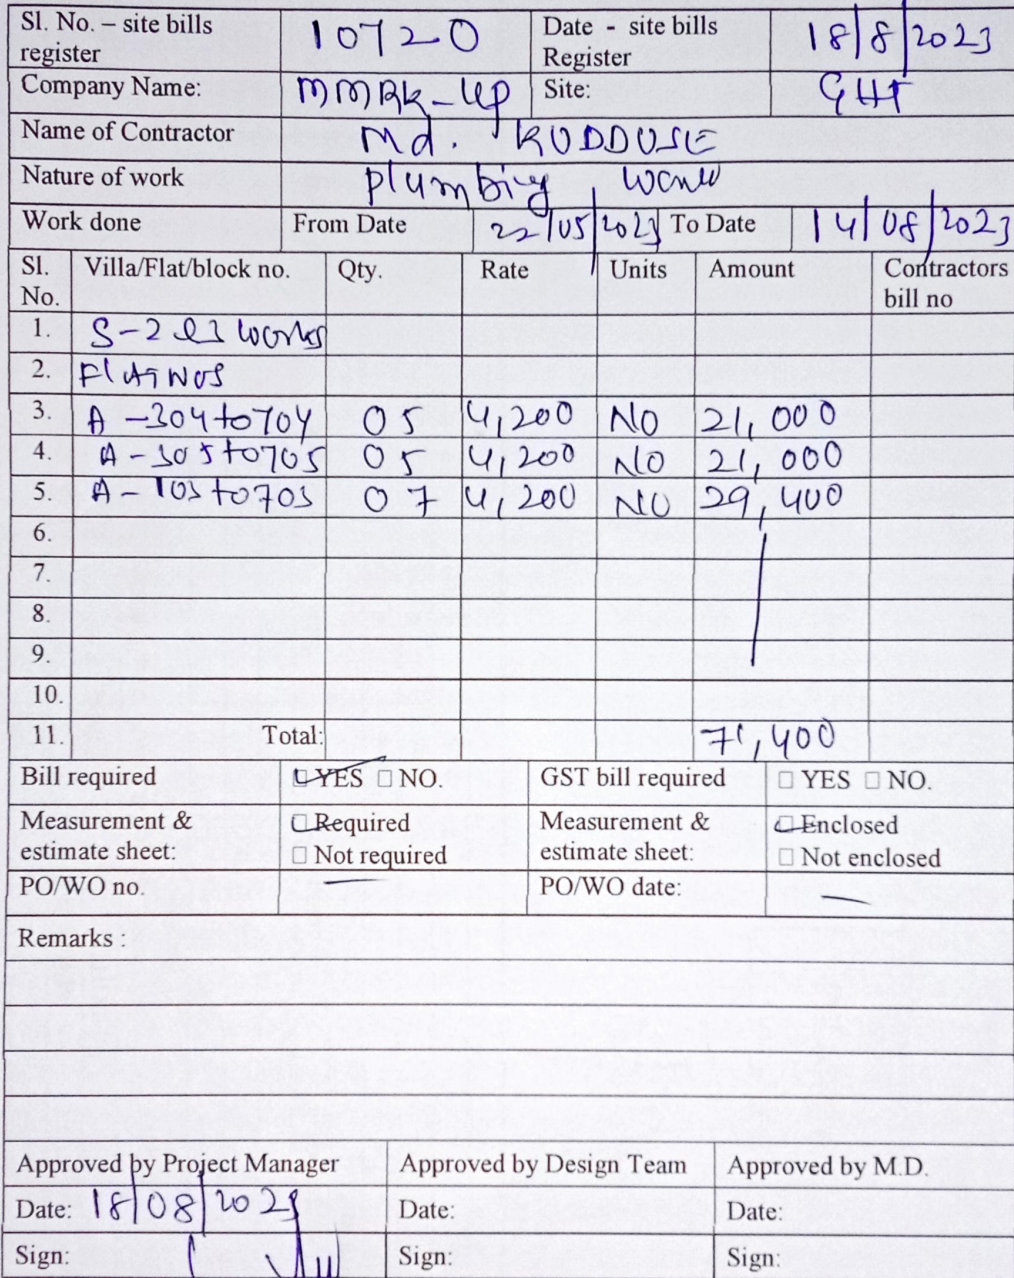 Sl. No. - site bills register 10720 Date - site bills Register 18/8/2023
Company Name: MMRK-UP Site: GHT
Name of Contractor Md. KUDDUSE
Nature of work Plumbing work
Work done From Date 22/05/2023 To Date 14/08/2023
Sl. No. Villa/Flat/block no. Qty. Rate Units Amount Contractors bill no
1. S-2 works
2. Flat NOS
3. A-304 to 704 05 4,200 NO 21,000
4. A-305 to 705 05 4,200 NO 21,000
5. A-103 to 703 07 4,200 NO 29,400
6.
7.
8.
9.
10.
11. Total: 71,400
Bill required □ YES □ NO. GST bill required □ YES □ NO.
Measurement & estimate sheet: □ Required □ Not required Measurement & estimate sheet: □ Enclosed □ Not enclosed
PO/WO no. PO/WO date:
Remarks :
Approved by Project Manager Approved by Design Team Approved by M.D.
Date: 18/08/2023 Date: Date:
Sign: Sign: Sign: